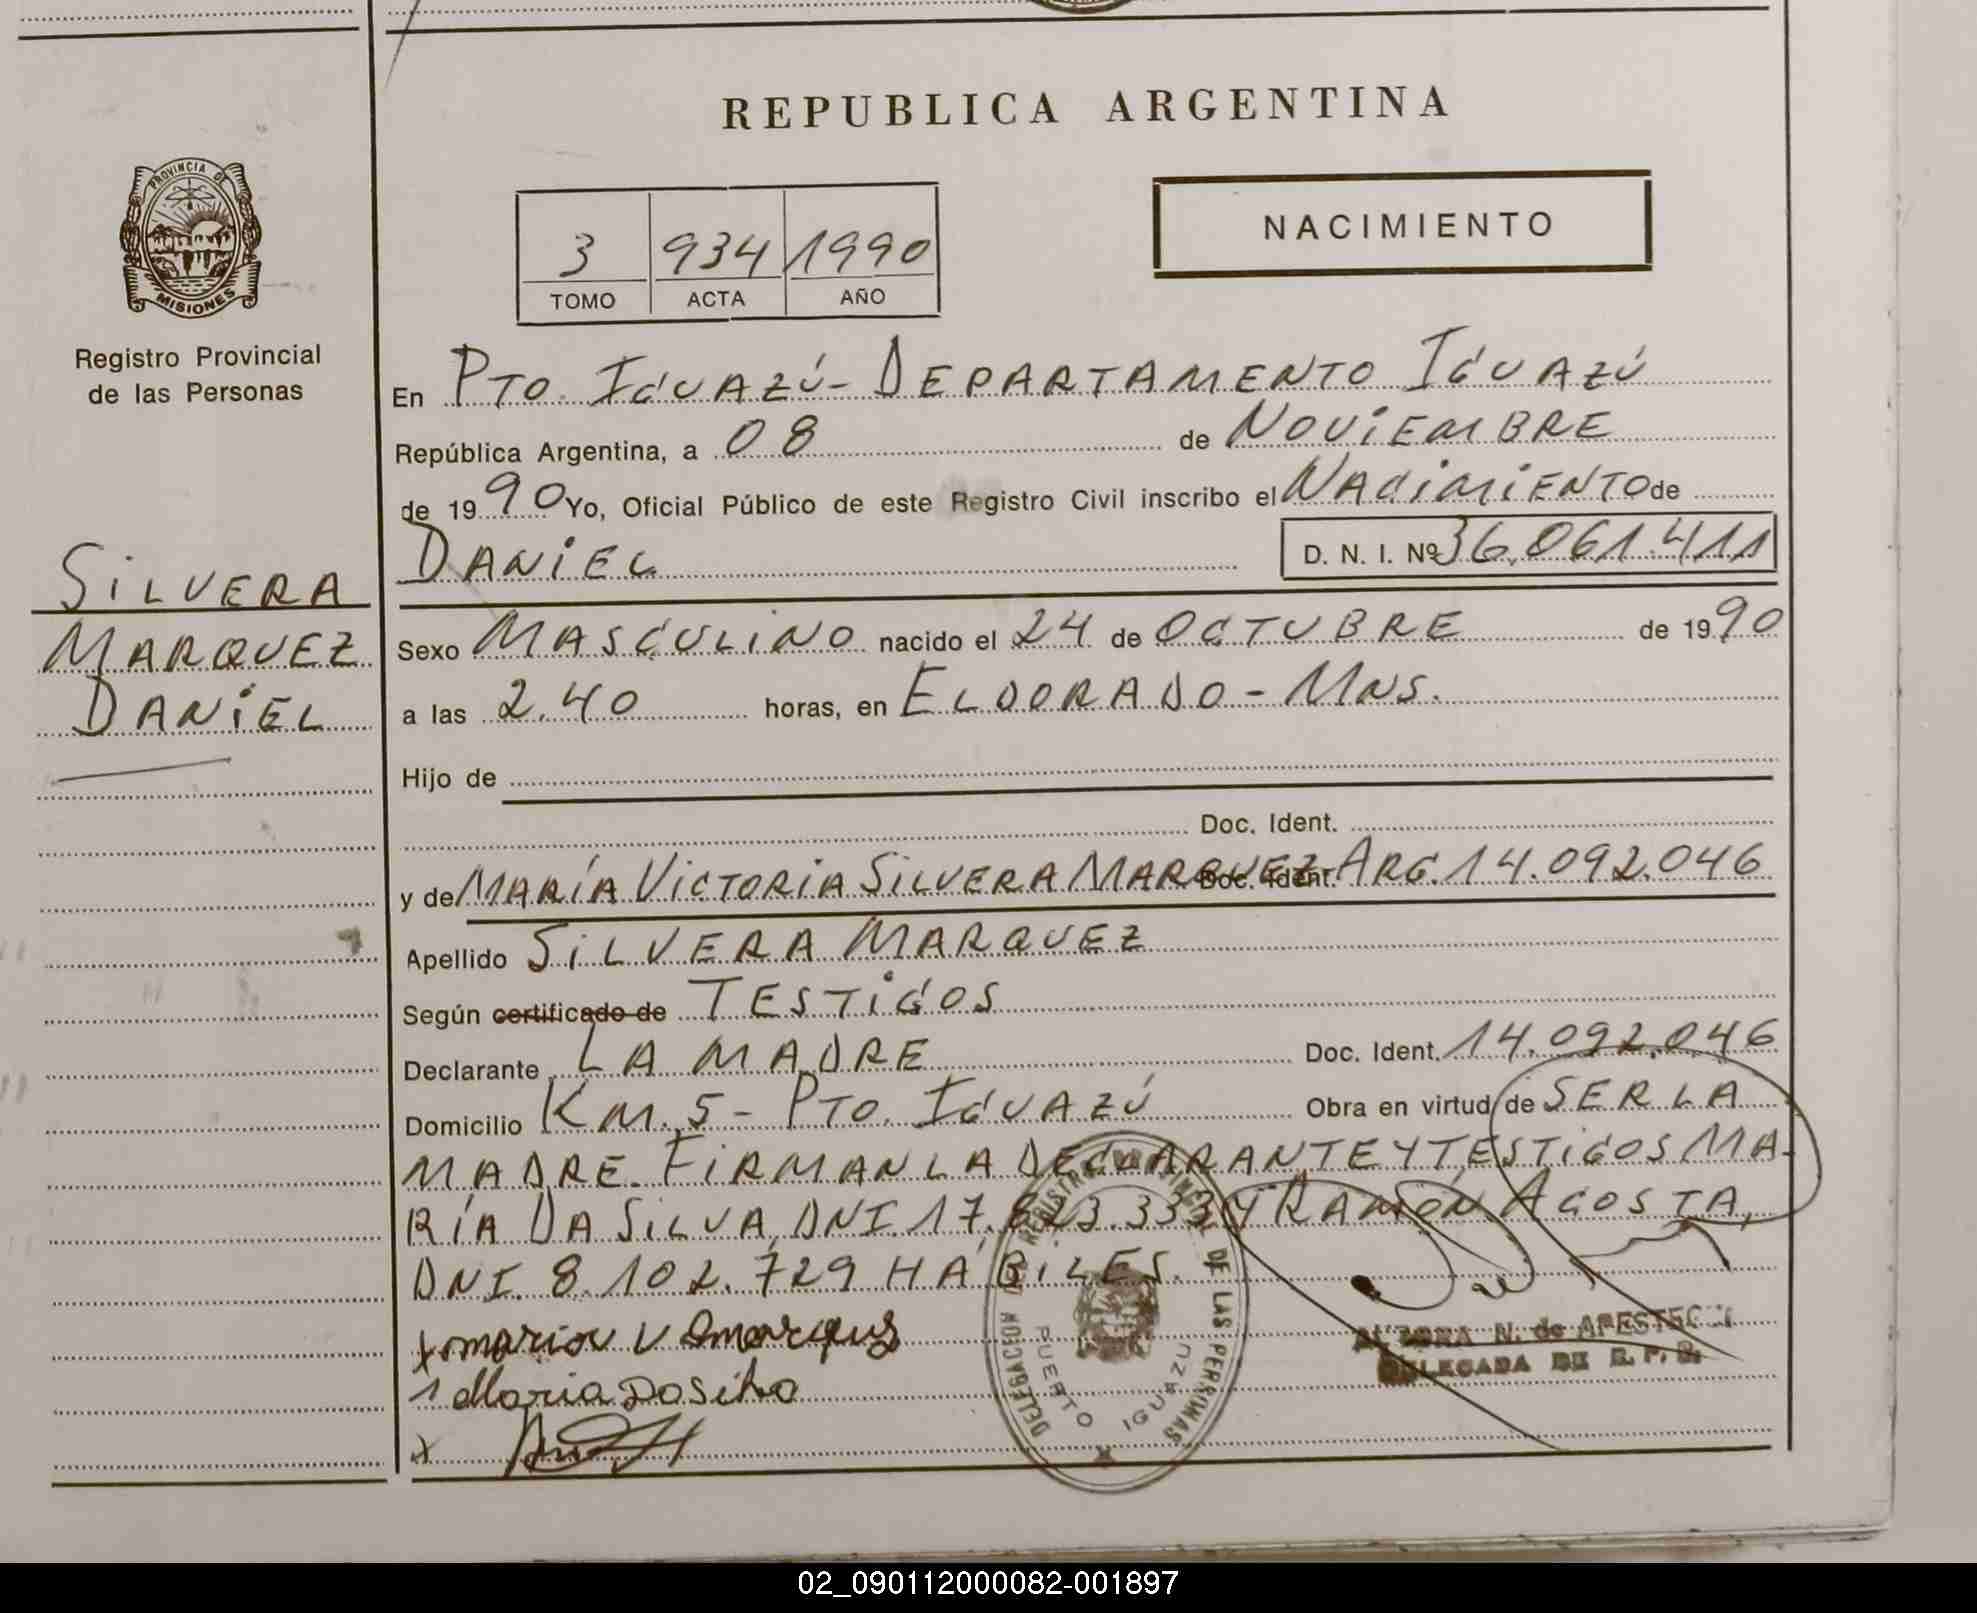 REPUBLICA ARGENTINA
PROVINCIA DE
MISIONES
Registro Provincial
de las Personas
3 934 1990
TOMO ACTA AÑO
NACIMIENTO
En PTO. IGUAZÚ - DEPARTAMENTO IGUAZÚ
República Argentina, a 08 de NOVIEMBRE
de 1990 Yo, Oficial Público de este Registro Civil inscribo el NACIMIENTO de
DANIEL D. N. I. Nº 36.061.411
SILVERA
MARQUEZ
DANIEL
Sexo MASCULINO nacido el 24 de OCTUBRE de 1990
a las 2.40 horas, en ELDORADO - MNS.
Hijo de
Doc. Ident.
y de MARÍA VICTORIA SILVERA MARQUEZ Doc. Ident. ARG. 14.092.046
Apellido SILVERA MARQUEZ
Según certificado de TESTIGOS
Declarante LA MADRE Doc. Ident. 14.092.046
Domicilio KM. 5 - PTO. IGUAZÚ Obra en virtud de SER LA
MADRE. FIRMAN LA DECLARANTE Y TESTIGOS MA-
RÍA DA SILVA, DNI. 17.823.333 Y RAMÓN AGOSTA,
DNI. 8.102.729 HÁBILES.
DELEGACION REGISTRO PROVINCIAL DE LAS PERSONAS
PUERTO IGUAZU
N. de APESTEG
DELEGADA DE R. P. P.
02_090112000082-001897